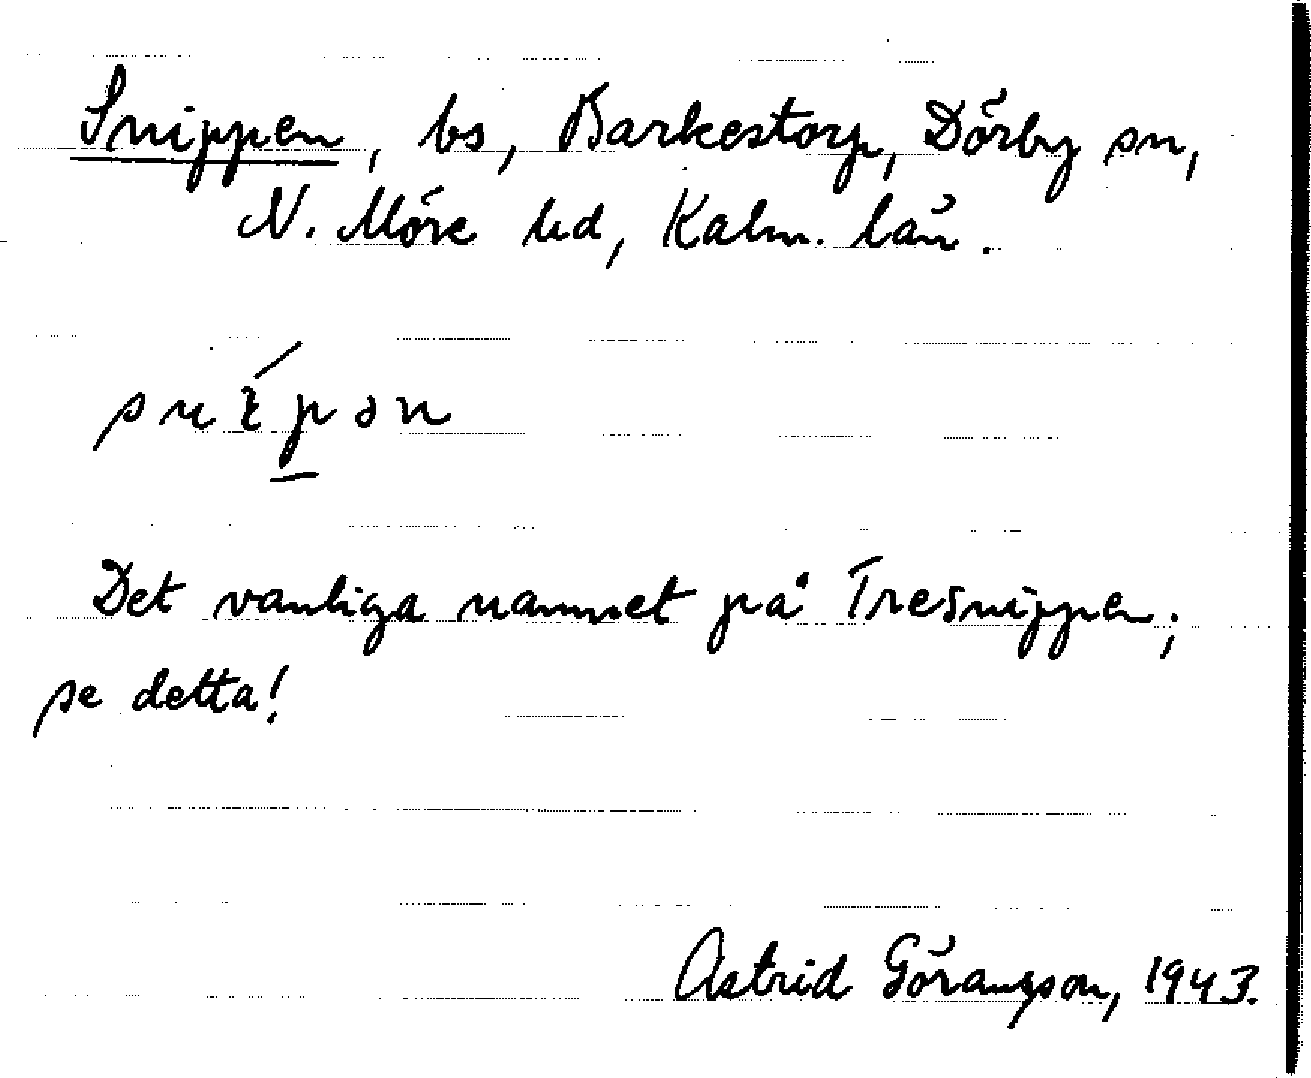 Snippen, bs, Barkestorp, Dörby sn,
N. Möre hd, Kalm. län.
snípən
Det vanliga namnet på Tresnippen;
se detta!
Astrid Göransson, 1943.